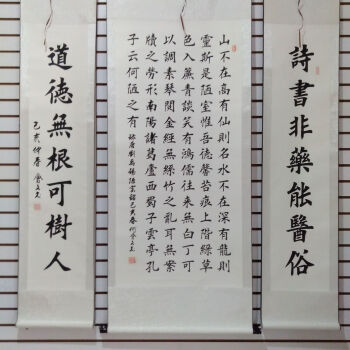 詩書非藥能醫俗
山不在高有仙則名水不在深有龍則
靈斯是陋室惟吾德馨苔痕上階綠草
色入簾青談笑有鴻儒往來無白丁可
以調素琴閱金經無絲竹之亂耳無案
牘之勞形南陽諸葛廬西蜀子雲亭孔
子云何陋之有 唐劉禹錫陋室銘己亥春
道德無根可樹人
己亥仲春